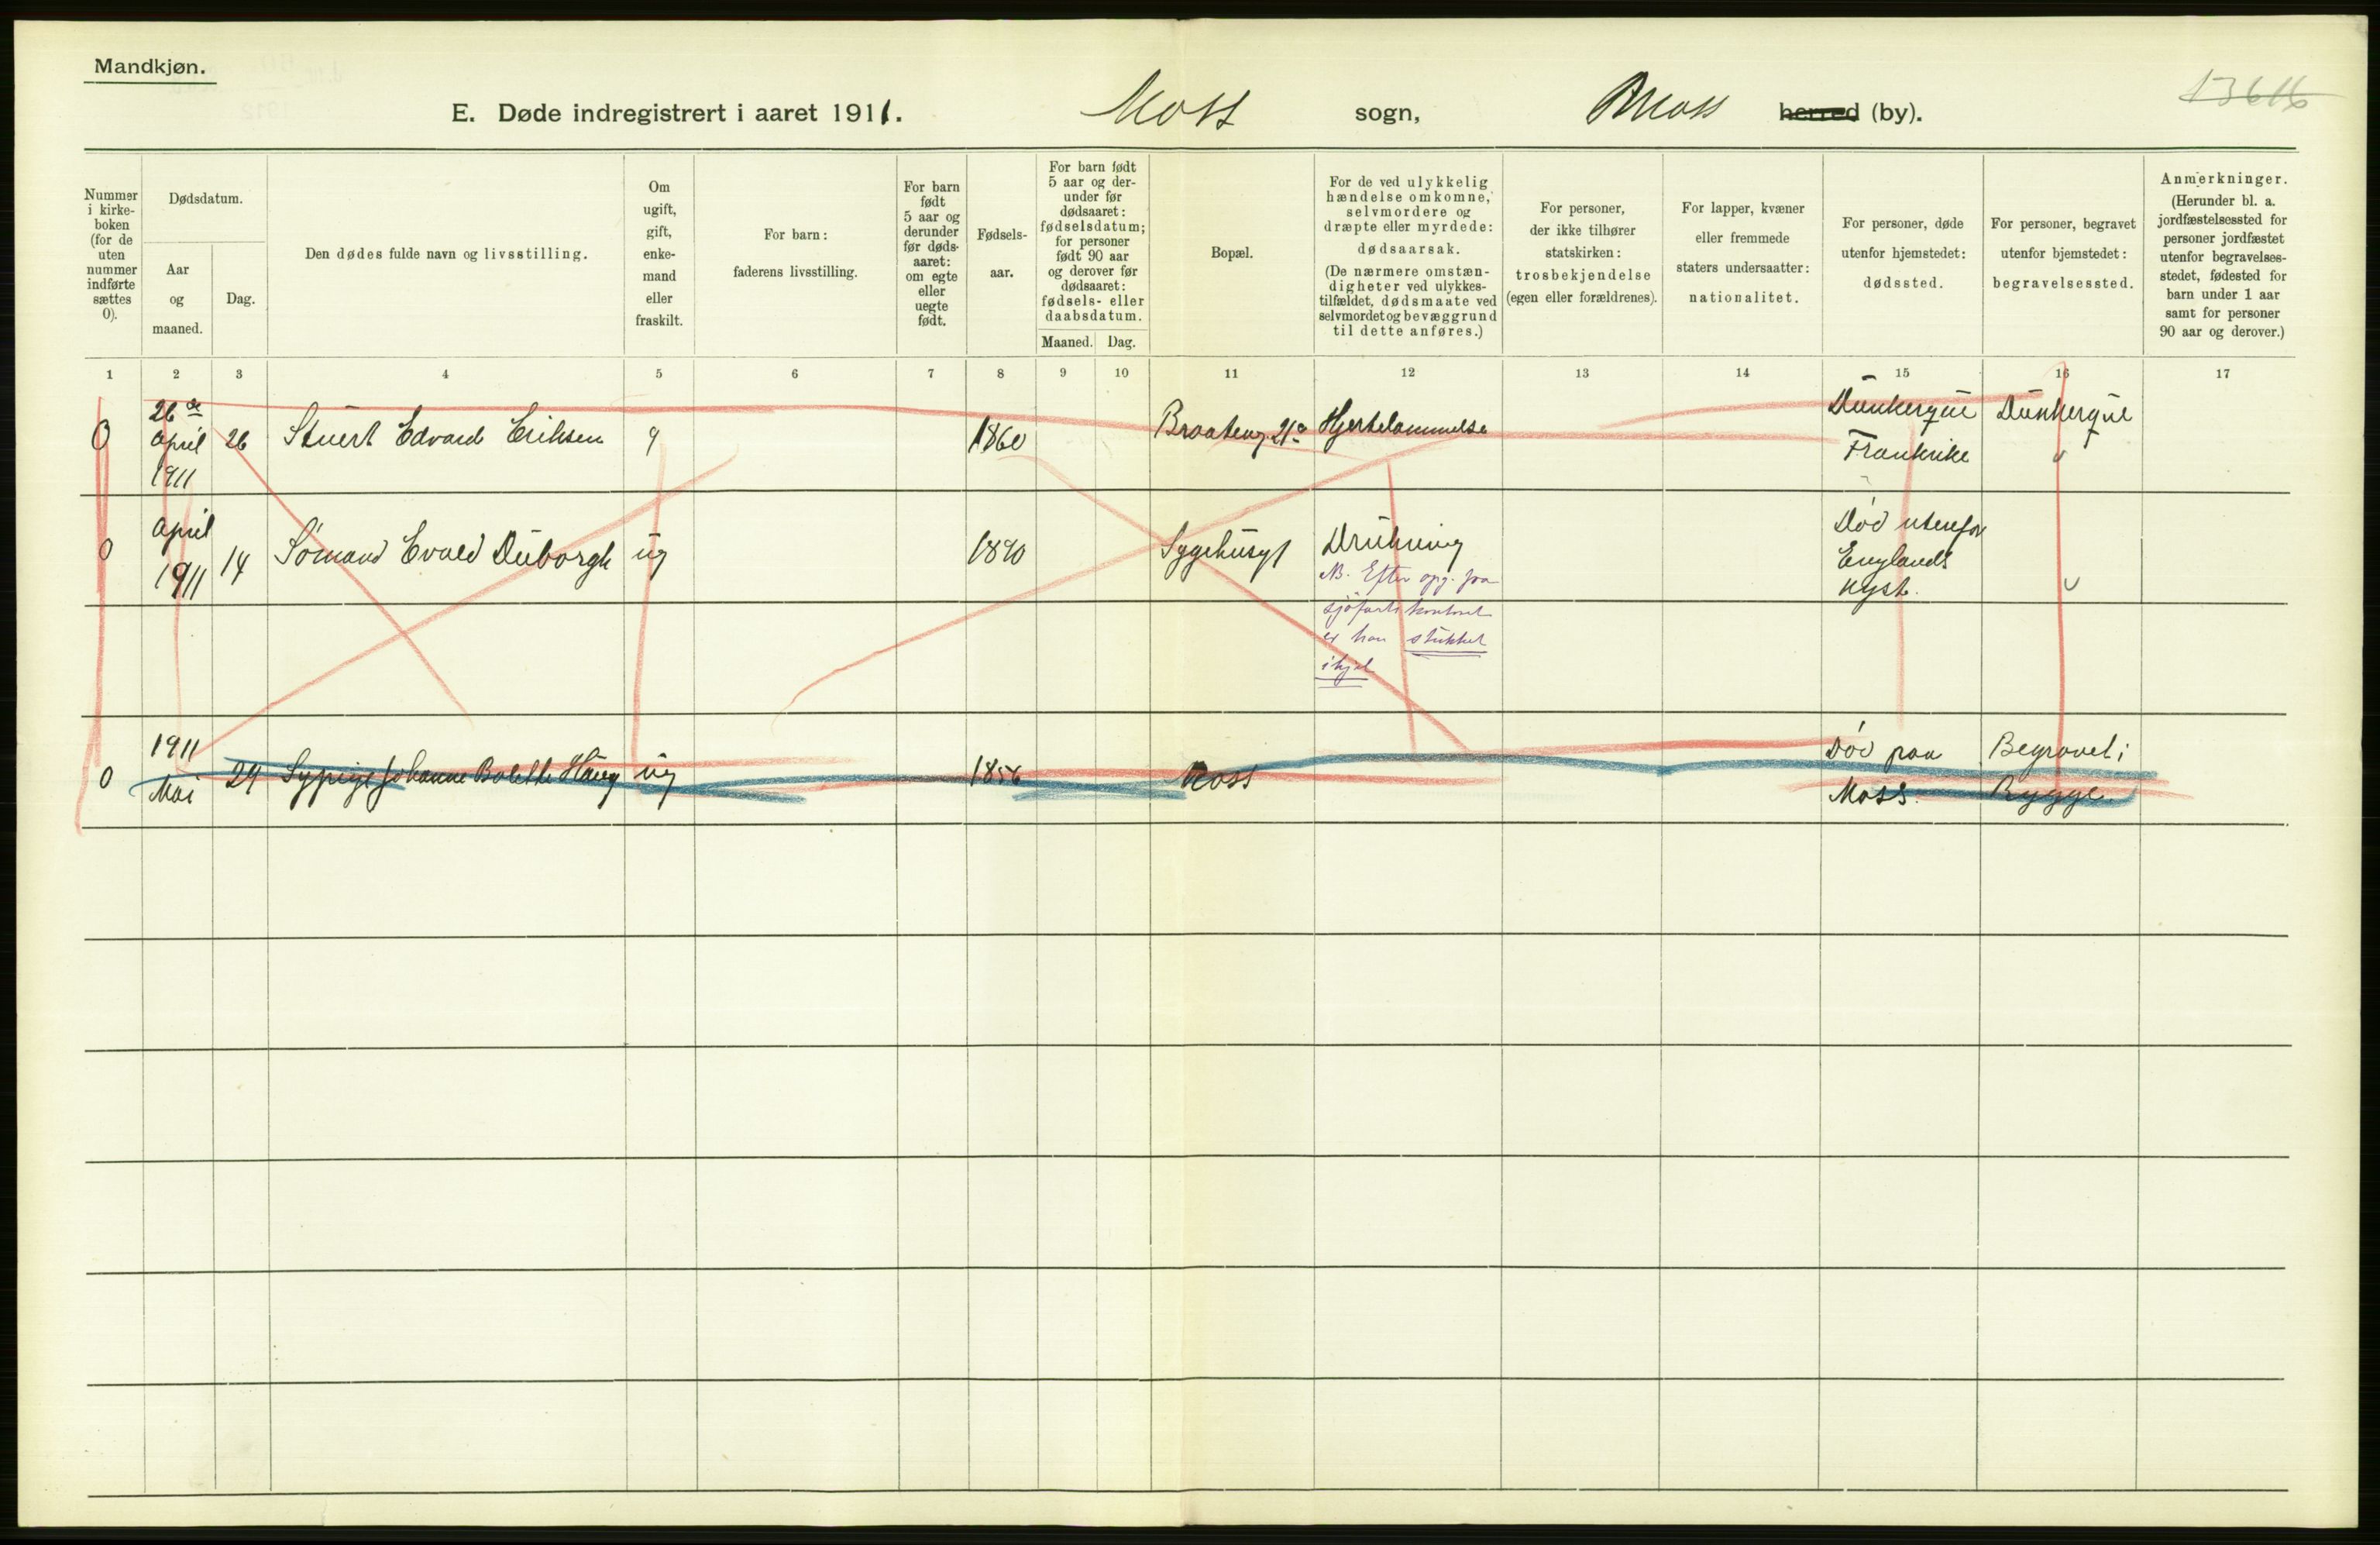 Mandkjøn.
13616
E. Døde indregistrert i aaret 1911. Moss sogn, Moss herred (by).
Nummer i kirke-boken (for de uten nummer indførte sættes 0).
Dødsdatum.
Aar og maaned.
Dag.
Den dødes fulde navn og livsstilling.
Om ugift, gift, enke-mand eller fraskilt.
For barn: faderens livsstilling.
For barn født 5 aar og derunder før døds-aaret: om egte eller uegte født.
Fødsels-aar.
For barn født 5 aar og der-under før dødsaaret: fødselsdatum; for personer født 90 aar og derover før dødsaaret: fødsels- eller daabsdatum.
Maaned. Dag.
Bopæl.
For de ved ulykkelig hændelse omkomne, selvmordere og dræpte eller myrdede: dødsaarsak. (De nærmere omstæn-digheter ved ulykkes-tilfældet, dødsmaate ved selvmordet og bevæggrund til dette anføres.)
For personer, der ikke tilhører statskirken: trosbekjendelse (egen eller forældrenes).
For lapper, kvæner eller fremmede staters undersaatter: nationalitet.
For personer, døde utenfor hjemstedet: dødssted.
For personer, begravet utenfor hjemstedet: begravelsessted.
Anmerkninger. (Herunder bl. a. jordfæstelsessted for personer jordfæstet utenfor begravelses-stedet, fødested for barn under 1 aar samt for personer 90 aar og derover.)
1 2 3 4 5 6 7 8 9 10 11 12 13 14 15 16 17
0 26de April 1911 26 Stuert Edvard Eriksen g 1860 Braateng. 21a Hjertelammelse Dunkerque Frankrike Dunkerque
0 April 1911 14 Sømand Evald Duborgh ug 1890 Sygehusgt Drukning
NB. Efter opg. fra
sjøfartskontoret
er han stukket
ihjel
Død utenfor
Englands
kyst.
0 1911 Mai 29 Sypige Johanne Bolette Haug ug 1856 Moss Død paa Moss. Begravet i Rygge.